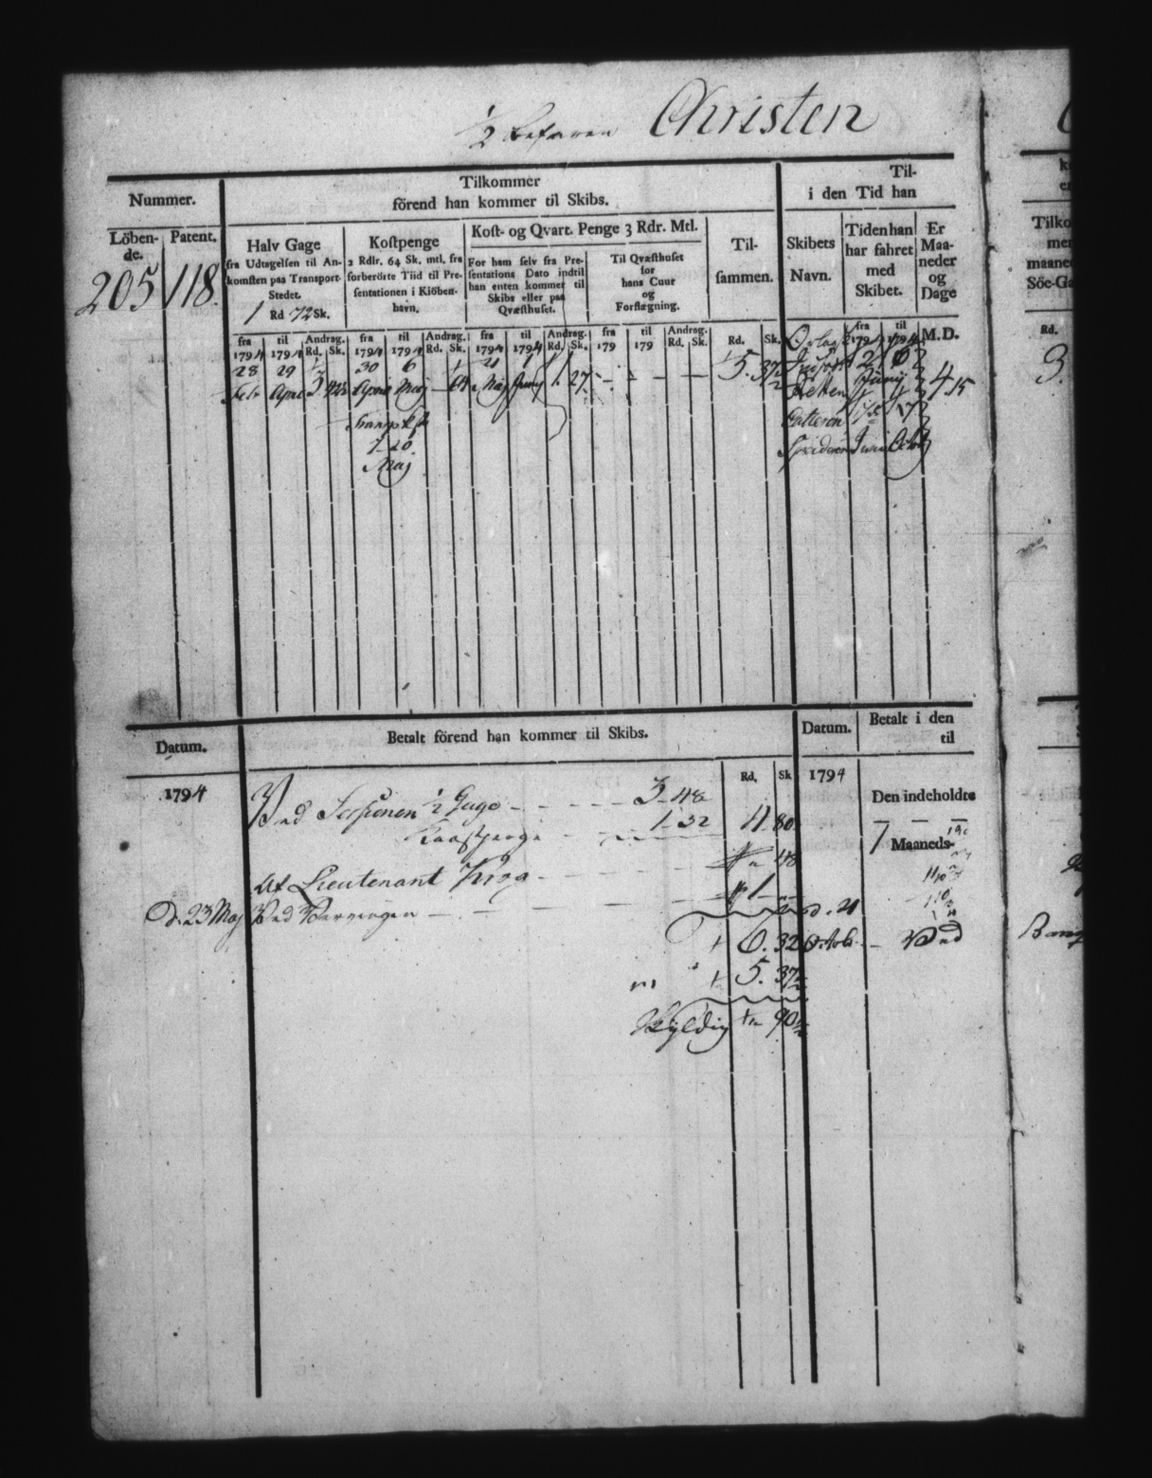 ½ Befaren Christen
Nummer.
Tilkommer
förend han kommer til Skibs.
Til-
i den Tid han
Löben-
de.
Patent.
Halv Gage
fra Udtagelsen til An-
komsten paa Transport-
Stedet.
1 Rd 72 Sk.
Kostpenge
2 Rdlr. 64 Sk. mtl. fra
forberörte Tiid til Pre-
sentationen i Kiöben-
havn.
Kost- og Qvart. Penge 3 Rdr. Mtl.
For ham selv fra Pre-
sentations Dato indtil
han enten kommer til
Skibs eller paa
Qvæsthuset.
Til Qvæsthuset
for
hans Cuur
og
Forflægning.
Til-
sammen.
Skibets
Navn.
Tiden han
har fahret
med
Skibet.
Er
Maa-
neder
og
Dage
205 118.
fra til Andrag. fra til Andrag. fra til Andrag. fra til Andrag.
1794 1794 Rd. Sk. 1794 1794 Rd. Sk. 1794 1794 Rd. Sk. 179 179 Rd. Sk. Rd. Sk.
fra til M.D.
1794 1794
28 29 30 6 21 1
Febr April 3 April Maj 64 Maj Juny 1. 27. 5. 37½
2 6
Juny 4 15
17
October
1 20
Maj
Datum.
Betalt förend han kommer til Skibs.
Datum.
Betalt i den
til
Rd. Sk
1794
1794
Den indeholdte
7 Maaneds-
Ved Sessionen ½ Gage 3 48
Kaastpenge 1 32 4 80
48
Af Lieutenant Krog
D. 23 Maj Ved 1
d. 21
6. 32 Octobr. Ved
5. 37½
Skyldig 90½
Tilko
mer
maaned
Söe-Ga
Rd.
3.